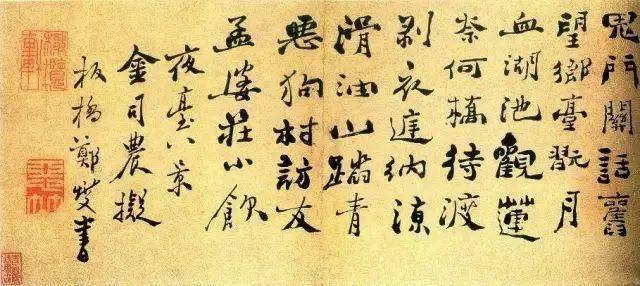 鬼門關話舊
望鄉臺翫月
血湖池觀蓮
柰何橋待渡
剥衣納涼
滑油山蹋青
惡狗村訪友
孟婆莊小飲
夜臺八景
金司農擬
板橋鄭燮書